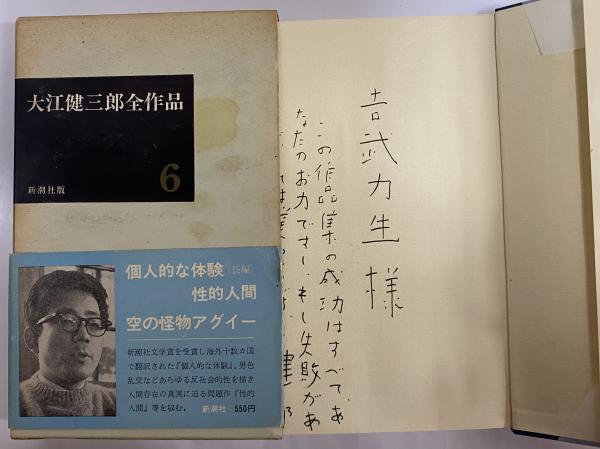 大江健三郎全作品
新潮社版
6
個人的な体験(長編)
性的人間
空の怪物アグイー
新潮社文学賞を受賞し海外十数ヵ国
で翻訳された『個人的な体験』、男色
乱交などあらゆる反社会的性を描き
人間存在の真実に迫る問題作『性的
人間』等を収む。
新潮社
550円
吉武力生様
この作品集の成功はすべて、あ
なたのお力ですし、もし失敗があ
健